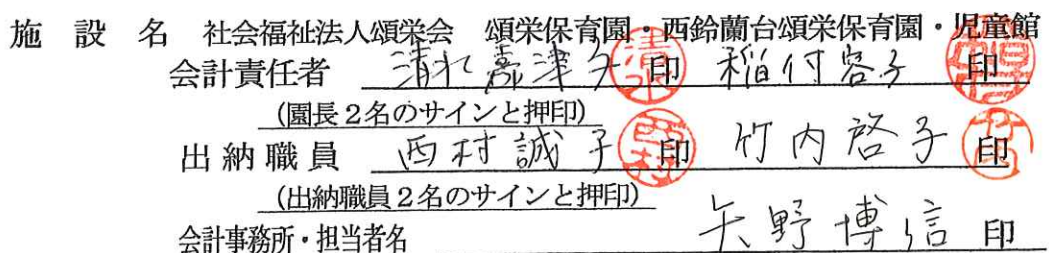 施 設 名 社会福祉法人頌栄会 頌栄保育園・西鈴蘭台頌栄保育園・児童館
会計責任者 清水嘉津子 印 稲付容子 印
(園長2名のサインと押印)
出納職員 西村誠子 印 竹内啓子 印
(出納職員2名のサインと押印)
会計事務所・担当者名 矢野博信 印